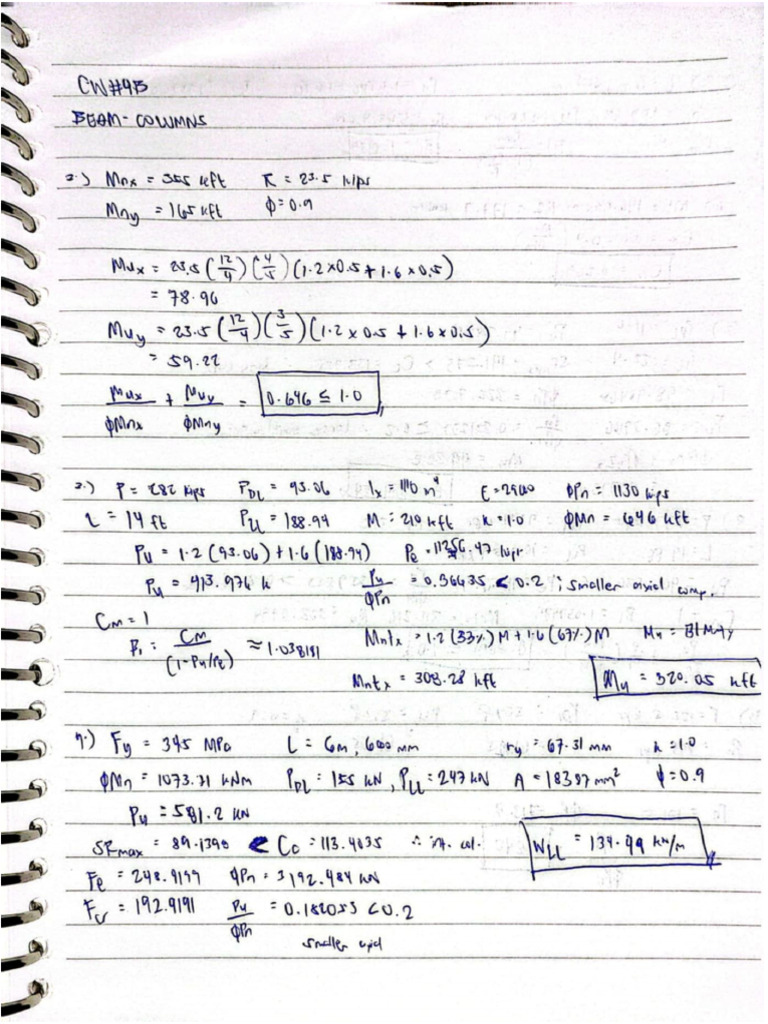 CW#4B
BEAM-COLUMNS
2.) Mnx = 355 kft K = 23.5 kips
Mny = 165 kft ϕ = 0.9
Mux = 23.5 (12/4) (4/5) (1.2 x 0.5 + 1.6 x 0.5)
= 78.96
Muy = 23.5 (12/4) (3/5) (1.2 x 0.5 + 1.6 x 0.5)
= 59.22
Mux/ϕMnx + Muy/ϕMny = 0.646 ≤ 1.0
3.) P = 282 kips PDL = 93.06 Ix = 1110 in⁴ E = 29000 ϕPn = 1130 kips
L = 14 ft PLL = 188.94 M = 210 kft K = 1.0 ϕMn = 646 kft
Pu = 1.2 (93.06) + 1.6 (188.94) Pe = 11256.47 kips
Pu = 413.976 k Pu/ϕPn = 0.36635 < 0.2 ; smaller axial comp.
Cm = 1
B1 = Cm/(1-Pu/Pe) ≈ 1.038181 Mntx = 1.2 (33%) M + 1.6 (67%) M Mu = B1Mnty
Mntx = 308.28 kft Mu = 320.05 kft
7.) Fy = 345 MPa L = 6m, 6000 mm ry = 67.31 mm k = 1.0
ϕMn = 1073.31 kNm PDL = 155 kN, PLL = 247 kN A = 18387 mm² ϕ = 0.9
Pu = 581.2 kN
SRmax = 89.1398 < Cc = 113.4035 ∴ int. col. WLL = 134.99 kN/m
Fe = 248.4199 ϕPn = 3192.484 kN
Fcr = 192.9191 Pu/ϕPn = 0.182053 < 0.2
smaller axial